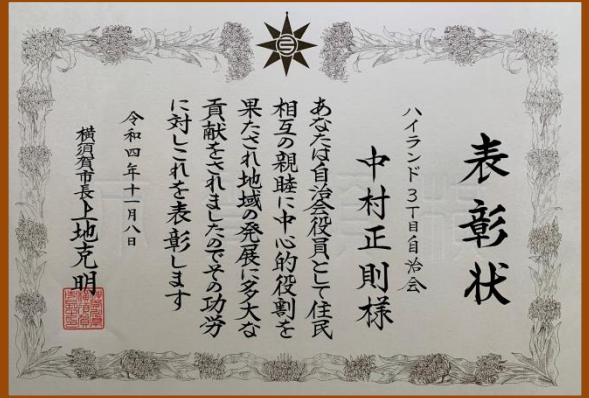 表彰状
ハイランド3丁目自治会
中村正則様
あなたは自治会役員として住民
相互の親睦に中心的役割を
果たされ地域の発展に多大な
貢献をされましたのでその功労
に対しこれを表彰します
令和四年十一月八日
横須賀市長上地克明